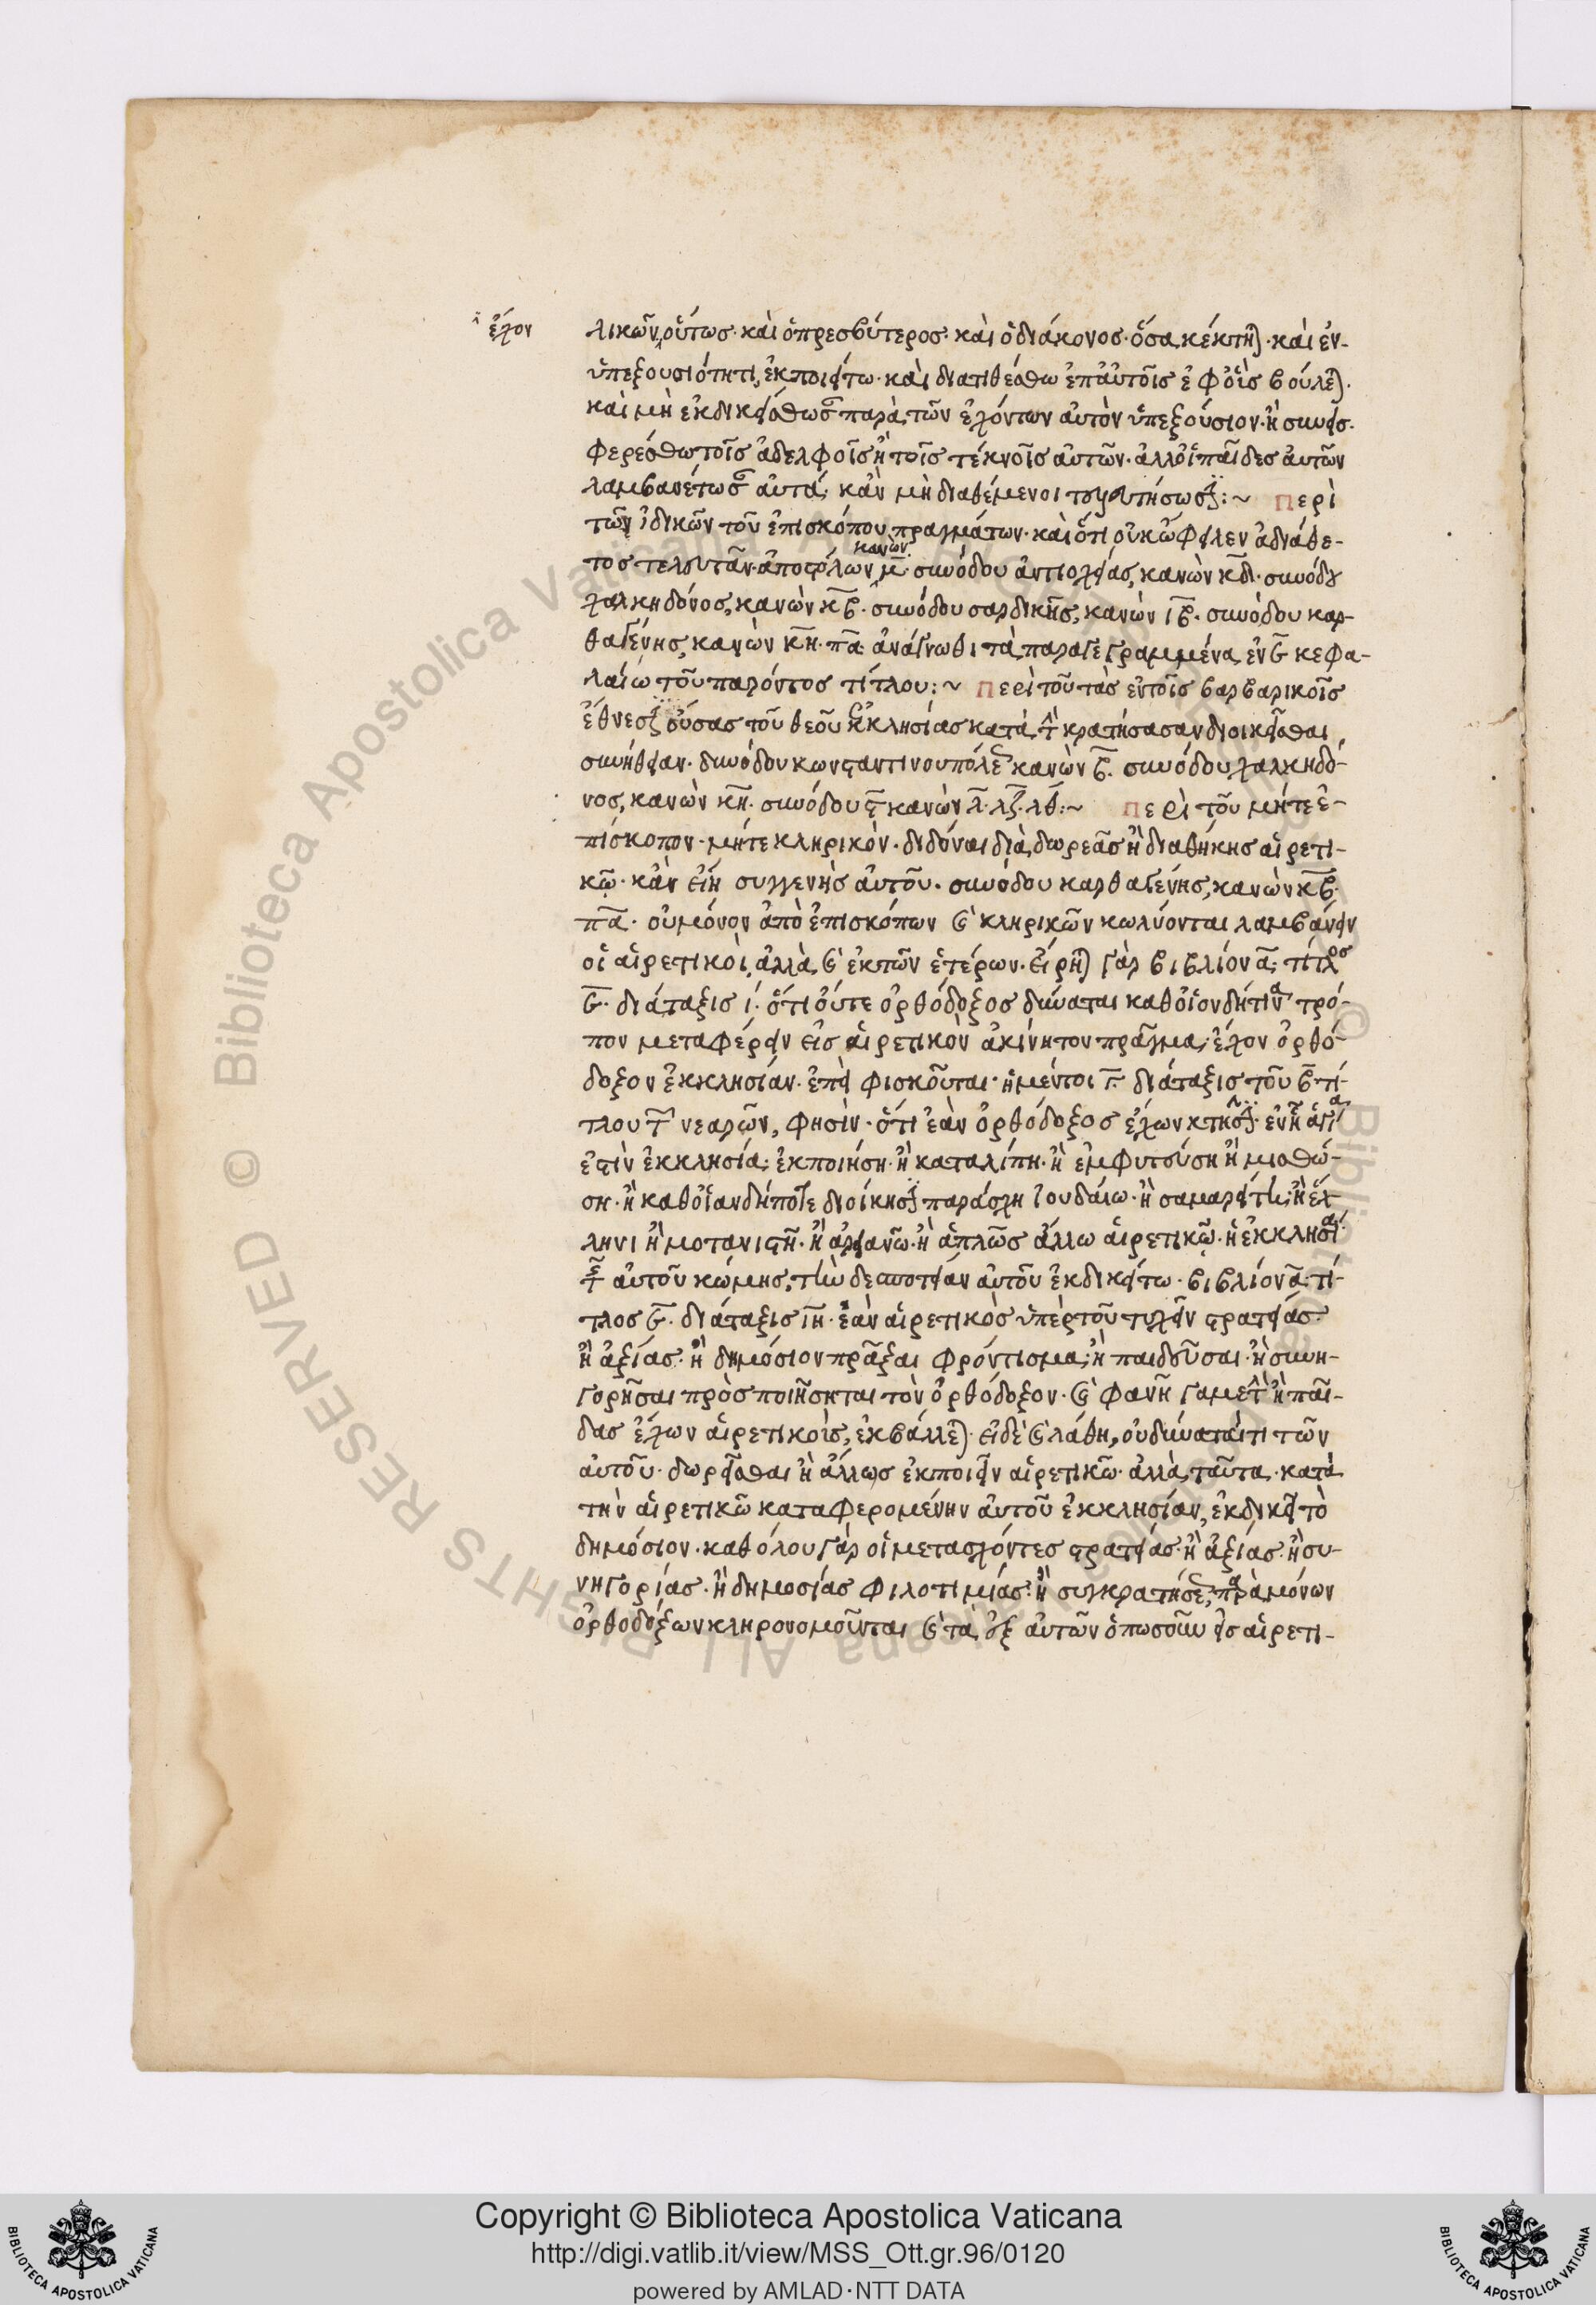 ἔχον
λικῶν, οὕτως· καὶ ὁ πρεσβύτερος· καὶ ὁ διάκονος· ὅσα κέκτηται· καὶ ἐν-
ὑπεξουσιότητι, ἐκποιείτω· καὶ διατιθέσθω ἐπ αὐτοῖς ἐφ οἷς βούλεται·
καὶ μὴ ἐκδικείσθωσαν παρὰ τῶν ἐχόντων αὐτὸν ὑπεξούσιον· ἢ
φερέσθω τοῖς ἀδελφοῖς ἢ τοῖς τέκνοις αὐτῶν· ἀλλ οἱ παῖδες αὐτῶν
λαμβανέτωσαν αὐτά, κἂν μὴ διαθέμενοι τελευτήσωσι:~ Περὶ
τῶν ἰδικῶν τοῦ ἐπισκόπου πραγμάτων· καὶ ὅτι οὐκ ὤφειλεν ἀδιάθε-
τος τελευτᾶν· ἀποστόλων κανὼν μ· συνόδου ἀντιοχείας, κανὼν κδ· συνόδου
χαλκηδόνος, κανὼν κβ· συνόδου σαρδικῆς, κανὼν ιβ· συνόδου καρ-
θαγένης, κανὼν κη· πα· ἀνάγνωθι τὰ παραγεγραμμένα ἐν β κεφα-
λαίω τοῦ παρόντος τίτλου:~ Περὶ τοῦ τὰς ἐν τοῖς βαρβαρικοῖς
ἔθνεσι οὔσας τοῦ θεοῦ ἐκκλησίας κατὰ τὴν κρατήσασαν διοικεῖσθαι
συνήθειαν· συνόδου κωνσταντινουπόλεως κανὼν β· συνόδου χαλκηδό-
νος, κανὼν κη· συνόδου ϛ κανὼν λ· λζ· λθ:~ Περὶ τοῦ μήτε ἐ-
πίσκοπον· μήτε κληρικὸν· διδόναι διὰ δωρεᾶς ἢ διαθήκης αἱρετι-
κῷ· κἂν εἴη συγγενὴς αὐτοῦ· συνόδου καρθαγένης, κανὼν κβ·
πα· οὐ μόνον ἀπὸ ἐπισκόπων καὶ κληρικῶν κωλύονται λαμβάνειν
οἱ αἱρετικοὶ, ἀλλὰ καὶ ἐκ τῶν ἑτέρων· εἴρηται γὰρ βιβλίον α, τίτλος
ε· διάταξις ι· ὅτι οὔτε ὀρθόδοξος δύναται καθ οἷον δήτινα τρό-
πον μεταφέρειν εἰς αἱρετικὸν ἀκίνητον πρᾶγμα, ἔχον ὀρθό-
δοξον ἐκκλησίαν· ἐπεὶ φισκοῦται· ἡ μέντοι γ διάταξις τοῦ β τί-
τλου τῶν νεαρῶν, φησὶν· ὅτι ἐὰν ὀρθόδοξος ἔχων κτῆσι· ἐν ᾗ ἁγία
ἐστὶν ἐκκλησία, ἐκποιήση· ἢ καταλίπη· ἢ ἐμφυτεύση ἢ μισθώ-
ση· ἢ καθ οἱανδήποτε διοίκησι παράσχη ἰουδαίω· ἢ σαμαρείτη, ἢ ἕλ-
ληνι ἢ μοτανιστῆ· ἢ ἀρειανῶ· ἢ ἁπλῶς ἄλλω αἱρετικῷ· ἡ ἐκκλησία
τῆς αὐτοῦ κώμης, τὴν δεσποτείαν αὐτοῦ ἐκδικείτω· βιβλίον α· τί-
τλος ε· διάταξις ιη· ἐὰν αἱρετικὸς ὑπὲρ τοῦ τυχεῖν στρατείας·
ἢ ἀξίας· ἢ δημόσιον πρᾶξαι φρόντισμα, ἢ παιδεῦσαι· ἢ συνη-
γορῆσαι πρὸς ποιήσηται τὸν ὀρθόδοξον· καὶ φανῆ γαμετὴν ἢ παῖ-
δας ἔχων αἱρετικοὺς, ἐκβάλλεται· εἰ δὲ καὶ λάθη, οὐ δύναταί τι τῶν
αὐτοῦ· δωρεῖσθαι ἢ ἄλλως ἐκποιεῖν αἱρετικῶ· ἀλλὰ ταῦτα· κατὰ
τὴν αἱρετικῶ καταφερομένην αὐτοῦ ἐκκλησίαν, ἐκδικεῖ τὸ
δημόσιον· καθόλου γὰρ οἱ μετασχόντες στρατείας· ἢ ἀξίας· ἢ συ-
νηγορίας· ἢ δημοσίας φιλοτιμίας· ἢ συγκρατήσεως, παρὰ μόνων
ὀρθοδόξων κληρονομοῦνται καὶ τὰ ἐξ αὐτῶν ὁπωσοῦν εἰς αἱρετι-
Copyright © Biblioteca Apostolica Vaticana
http://digi.vatlib.it/view/MSS_Ott.gr.96/0120
powered by AMLAD·NTT DATA